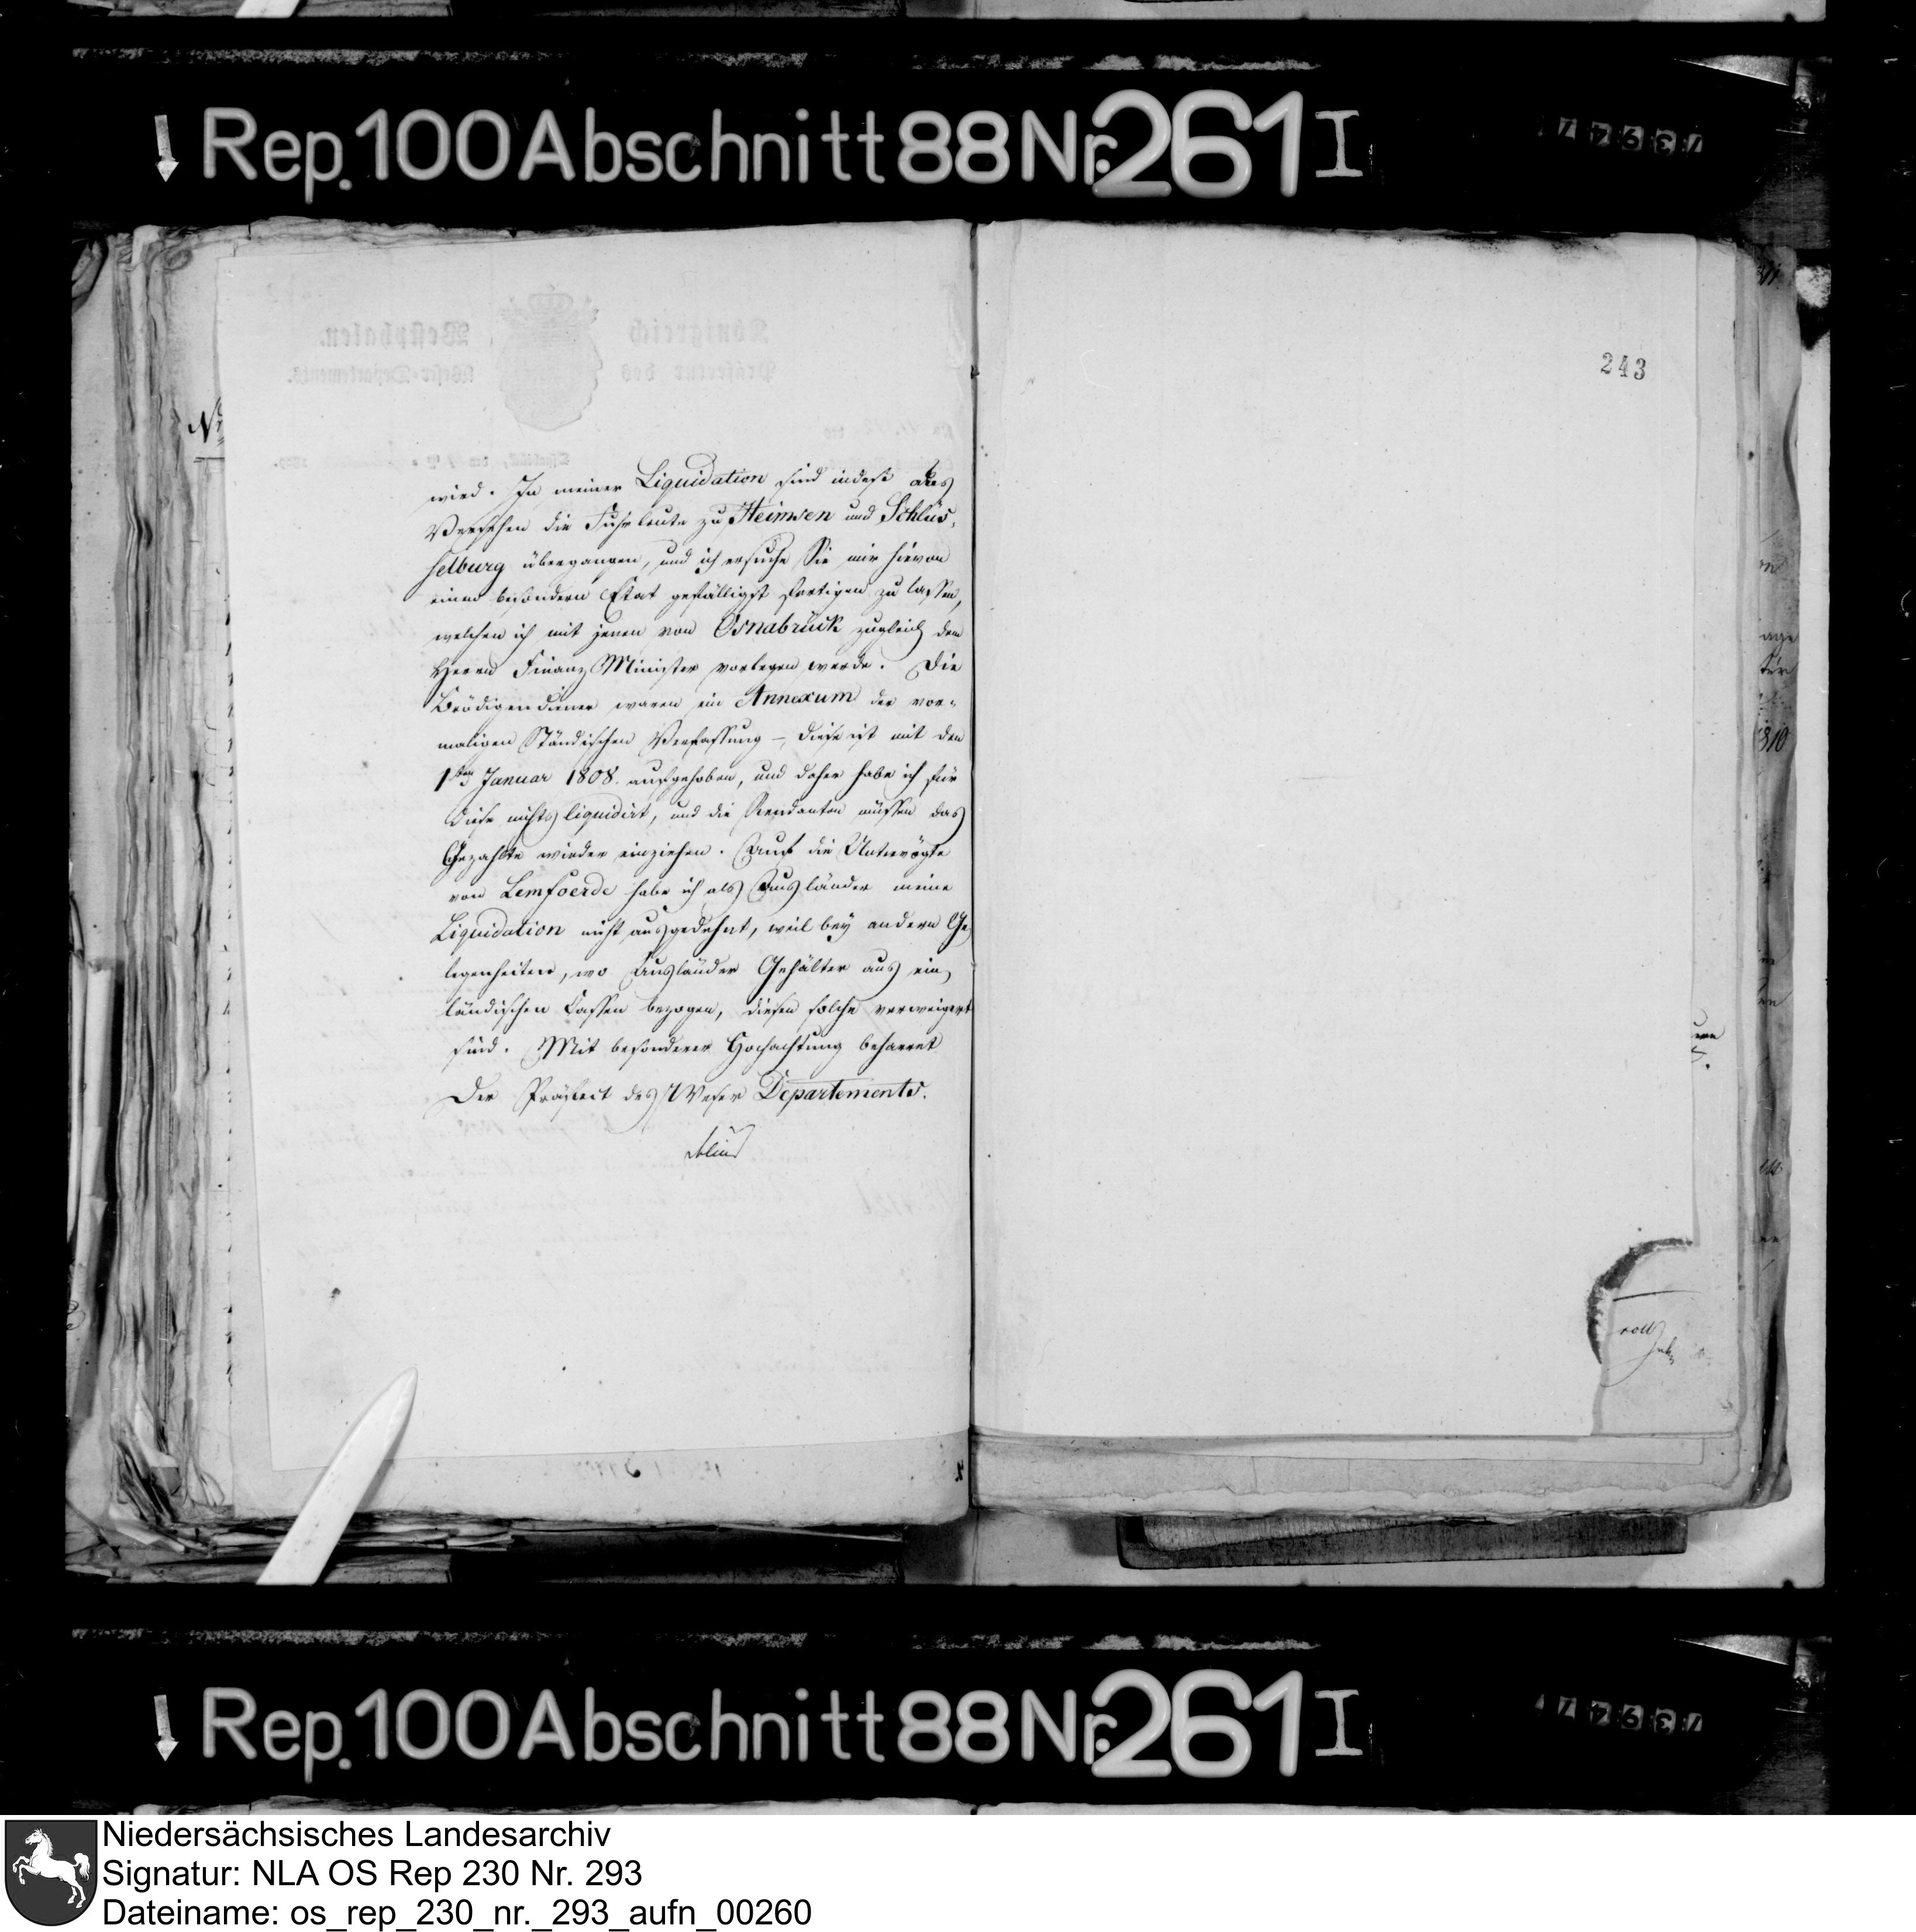 Rep. 100 Abschnitt 88 Nr. 261 I
243
wird. In meiner Liquidation sind indeß aus
Versehen die Fuhrleute zu Heimsen und Schlüs,
selburg übergangen, und ich ersuche Sie mir hievon
einen besondern Etat gefälligst fertigen zu lassen,
welchen ich mit jenen von Osnabrück zugleich dem
Herrn Finanz Minister vorlegen werde. Die
diener waren ein Annexum der vor-
maligen Ständischen Verfassung – diese ist mit dem
1ten Januar 1808. aufgehoben, und daher habe ich für
diese nichts liquidirt, und die Rendanten müssen das
Gezahlte wieder einziehen. Auf die Untervögte
von Lemfoerde habe ich als Ausländer meine
Liquidation nicht ausgedehnt, weil bey andern Ge
legenheiten, wo Ausländer Gehälter aus ein,
ländischen Cassen bezogen, diesen solche verweigert
sind. Mit besonderer Hochachtung beharret
Der Präfect des Weser Departements.
Rep. 100 Abschnitt 88 Nr. 261 I
Niedersächsisches Landesarchiv
Signatur: NLA OS Rep 230 Nr. 293
Dateiname: os_rep_230_nr._293_aufn_00260